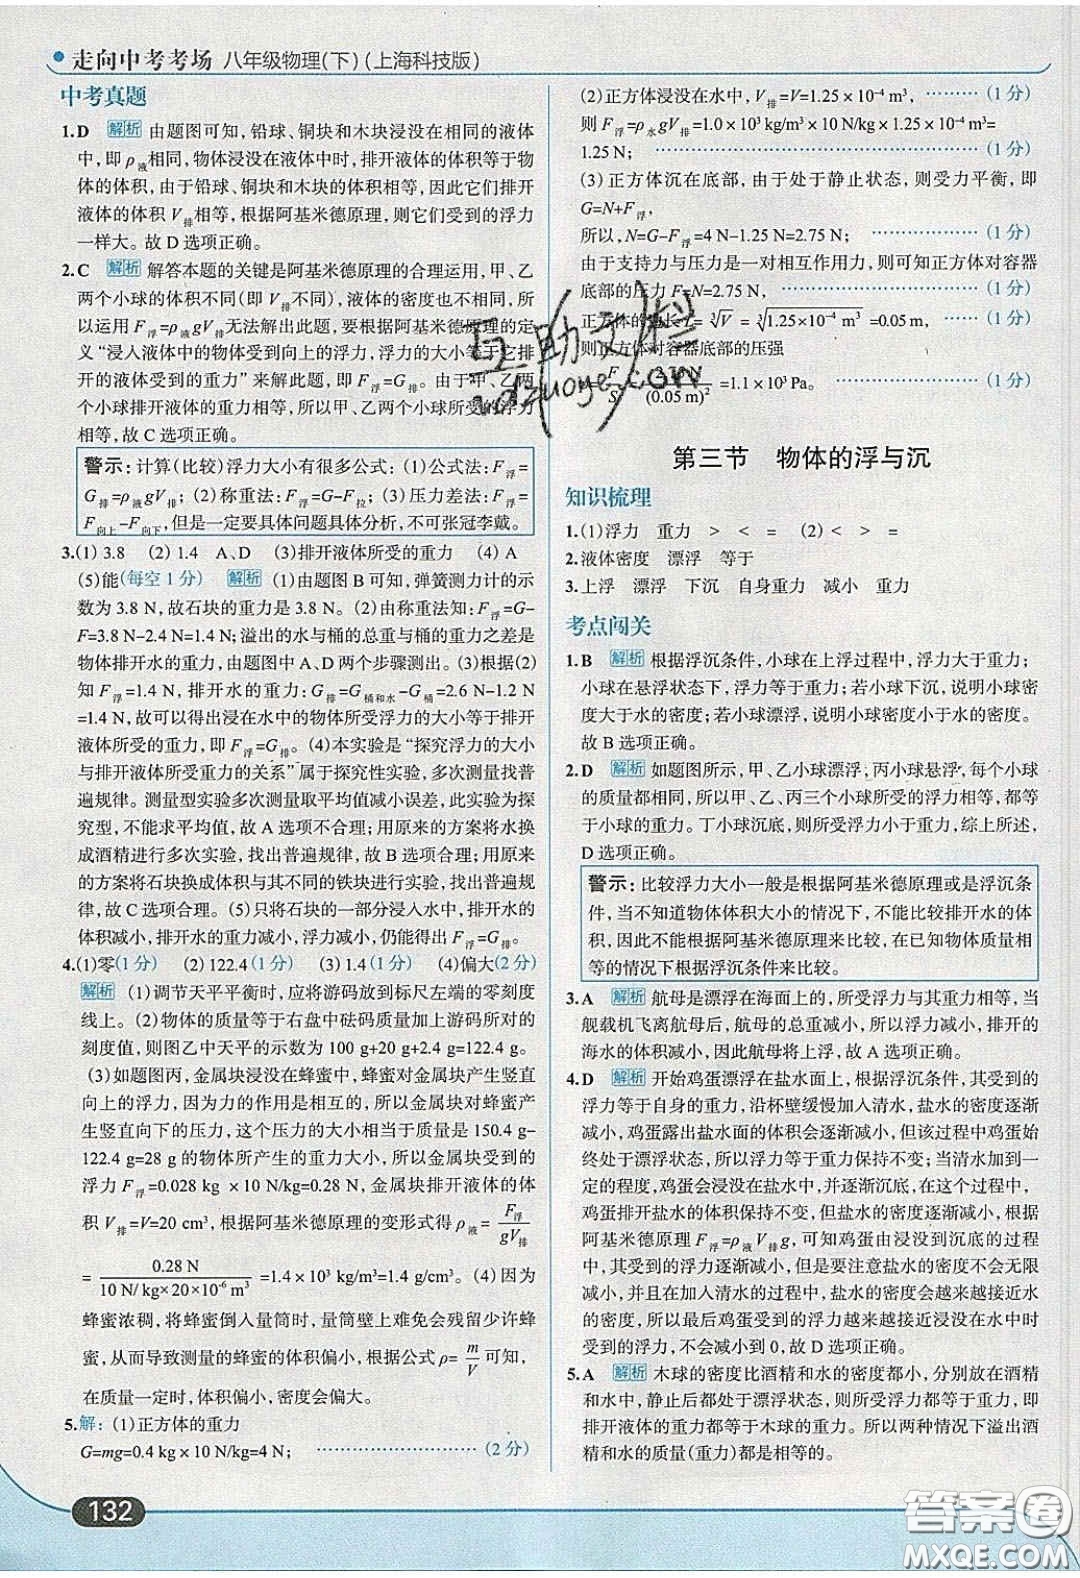 走向中考考场 八年级物理(下)(上海科技版)
中考真题
1.D 解析 由题图可知,铅球、铜块和木块浸没在相同的液体
中,即ρ液相同,物体浸没在液体中时,排开液体的体积等于物
体的体积,由于铅球、铜块和木块的体积相等,因此它们排开
液体的体积V排相等,根据阿基米德原理,则它们受到的浮力
一样大。故D选项正确。
2.C 解析 解答本题的关键是阿基米德原理的合理运用,甲、乙
两个小球的体积不同(即V排不同),液体的密度也不同,所
以运用F浮=ρ液gV排无法解出此题,要根据阿基米德原理的定
义“浸入液体中的物体受到向上的浮力,浮力的大小等于它排
开的液体受到的重力”来解此题,即F浮=G排。由于甲、乙两
个小球排开液体的重力相等,所以甲、乙两个小球所受的浮力
相等,故C选项正确。
警示:计算(比较)浮力大小有很多公式:(1)公式法:F浮=
G排=ρ液gV排;(2)称重法:F浮=G-F拉;(3)压力差法:F浮=
F向上-F向下,但是一定要具体问题具体分析,不可张冠李戴。
3.(1)3.8 (2)1.4 A、D (3)排开液体所受的重力 (4)A
(5)能(每空1分) 解析 (1)由题图B可知,弹簧测力计的示
数为3.8 N,故石块的重力是3.8 N。(2)由称重法知:F浮=G-
F=3.8 N-2.4 N=1.4 N;溢出的水与桶的总重与桶的重力之差是
物体排开水的重力,由题图中A、D两个步骤测出。(3)根据(2)
知F浮=1.4 N,排开水的重力:G排=G桶和水-G桶=2.6 N-1.2 N
=1.4 N,故可以得出浸在水中的物体所受浮力的大小等于排开
液体所受的重力,即F浮=G排。(4)本实验是“探究浮力的大小
与排开液体所受重力的关系”属于探究性实验,多次测量找普
遍规律。测量型实验多次测量取平均值减小误差,此实验为探
究型,不能求平均值,故A选项不合理;用原来的方案将水换
成酒精进行多次实验,找出普遍规律,故B选项合理;用原来
的方案将石块换成体积与其不同的铁块进行实验,找出普遍规
律,故C选项合理。(5)只将石块的一部分浸入水中,排开水的
体积减小,排开水的重力减小,浮力减小,仍能得出F浮=G排。
4.(1)零(1分) (2)122.4(1分) (3)1.4(1分) (4)偏大(2分)
解析 (1)调节天平平衡时,应将游码放到标尺左端的零刻度
线上。(2)物体的质量等于右盘中砝码质量加上游码所对的
刻度值,则图乙中天平的示数为100 g+20 g+2.4 g=122.4 g。
(3)如题图丙,金属块浸没在蜂蜜中,蜂蜜对金属块产生竖直
向上的浮力,因为力的作用是相互的,所以金属块对蜂蜜产
生竖直向下的压力,这个压力的大小相当于质量是150.4 g-
122.4 g=28 g的物体所产生的重力大小,所以金属块受到的
浮力F浮=0.028 kg ×10 N/kg=0.28 N,金属块排开液体的体
积V排=V=20 cm³,根据阿基米德原理的变形式得ρ液=F浮/gV排
=0.28 N/(10 N/kg×20×10⁻⁶ m³)=1.4×10³ kg/m³=1.4 g/cm³。(4)因为
蜂蜜浓稠,将蜂蜜倒入量筒时,量筒壁上难免会残留少许蜂
蜜,从而导致测量的蜂蜜的体积偏小,根据公式ρ=m/V可知,
在质量一定时,体积偏小,密度会偏大。
5.解:(1)正方体的重力
G=mg=0.4 kg×10 N/kg=4 N; (2分)
132
(2)正方体浸没在水中,V排=V=1.25×10⁻⁴ m³, (1分)
则F浮=ρ水gV排=1.0×10³ kg/m³×10 N/kg×1.25×10⁻⁴ m³=
1.25 N; (1分)
(3)正方体沉在底部,由于处于静止状态,则受力平衡,即
G=N+F浮,
所以,N=G-F浮=4 N-1.25 N=2.75 N; (1分)
由于支持力与压力是一对相互作用力,则可知正方体对容器
底部的压力F=N=2.75 N, (1分)
正方体的边长L=³√V=³√1.25×10⁻⁴ m³=0.05 m, (1分)
则正方体对容器底部的压强
F/S 2.75 N/(0.05 m)²=1.1×10³ Pa。 (1分)
第三节 物体的浮与沉
知识梳理
1.(1)浮力 重力 > < = (2)< > =
2.液体密度 漂浮 等于
3.上浮 漂浮 下沉 自身重力 减小 重力
考点闯关
1.B 解析 根据浮沉条件,小球在上浮过程中,浮力大于重力;
小球在悬浮状态下,浮力等于重力;若小球下沉,说明小球密
度大于水的密度;若小球漂浮,说明小球密度小于水的密度。
故B选项正确。
2.D 解析 如题图所示,甲、乙小球漂浮;丙小球悬浮,每个小球
的质量都相同,所以甲、乙、丙三个小球所受的浮力相等,都等
于小球的重力。丁小球沉底,则所受浮力小于重力,综上所述,
D选项正确。
警示:比较浮力大小一般是根据阿基米德原理或是浮沉条
件,当不知道物体体积大小的情况下,不能比较排开水的体
积,因此不能根据阿基米德原理来比较,在已知物体质量相
等的情况下根据浮沉条件来比较。
3.A 解析 航母是漂浮在海面上的,所受浮力与其重力相等,当
舰载机飞离航母后,航母的总重减小,所以浮力减小,排开的
海水的体积减小,因此航母将上浮,故A选项正确。
4.D 解析 开始鸡蛋漂浮在盐水面上,根据浮沉条件,其受到的
浮力等于自身的重力,沿杯壁缓慢加入清水,盐水的密度逐渐
减小,鸡蛋露出盐水面的体积会逐渐减小,但该过程中鸡蛋始
终处于漂浮状态,所以浮力等于重力保持不变;当清水加到一
定的程度,鸡蛋会浸没在盐水中,并逐渐沉底,在这个过程中,
鸡蛋排开盐水的体积保持不变,但盐水的密度逐渐减小,根据
阿基米德原理F浮=ρ液V排g,可知鸡蛋由浸没到沉底的过程
中,其受到的浮力逐渐减小,但是要注意盐水的密度不会无限
减小,即使在加清水的过程中,盐水的密度会越来越接近水的
密度,所以最后鸡蛋受到的浮力越来越接近浸没在水中时受
到的浮力,不会减小到0,故D选项正确。
5.A 解析 木球的密度比酒精和水的密度都小,分别放在酒精
和水中,静止后都处于漂浮状态,则所受浮力都等于重力,即
排开液体的重力都等于木球的重力。所以两种情况下溢出酒
精和水的质量(重力)都是相等的。
答案圈
MXQE.COM